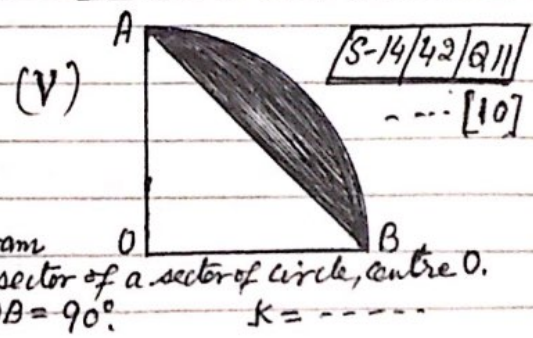 A
S-14/42/Q11
(V)
---- [10]
O
B
am
sector of a sector of circle, centre O.
OB = 90°.
K = -----